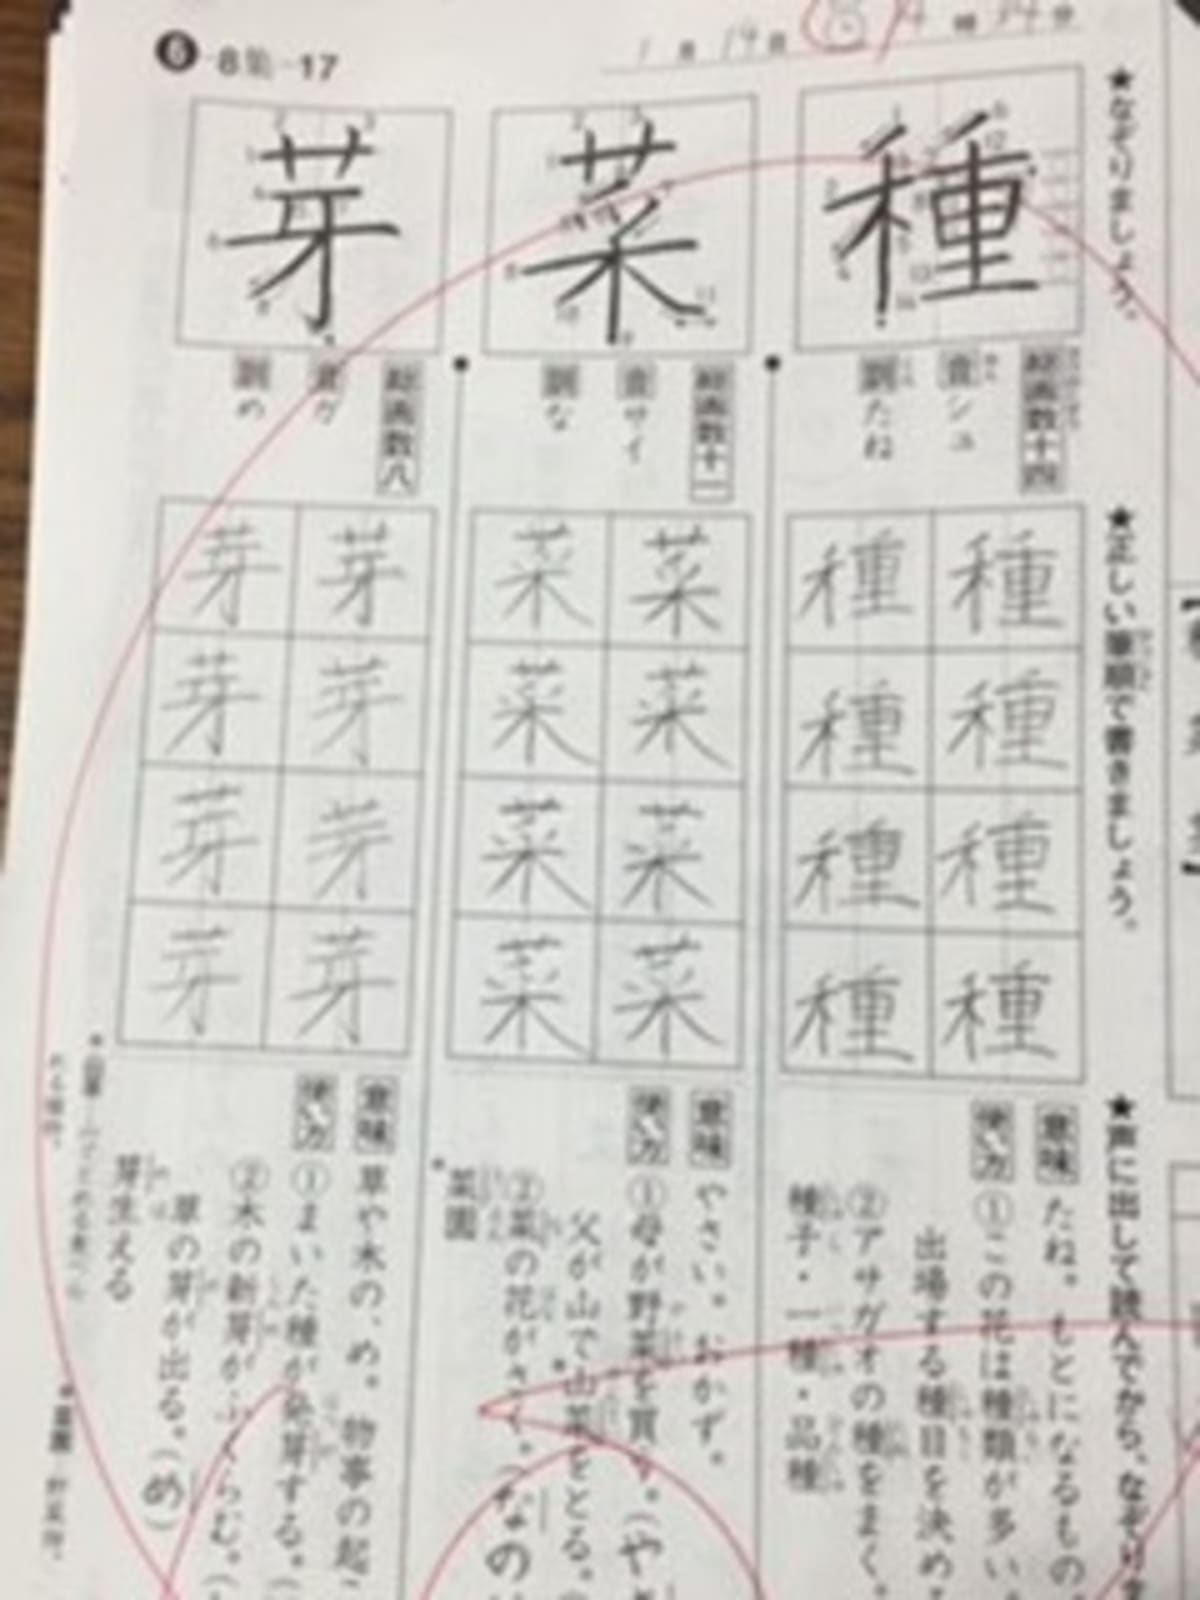 6-8集-17
1月19日
★なぞりましょう。
種
総画数十四
音 シュ
訓 たね
菜
総画数十一
音 サイ
訓 な
芽
総画数八
音 ガ
訓 め
★正しい筆順で書きましょう。
種 種 種 種
種 種 種 種
菜 菜 菜 菜
菜 菜 菜 菜
芽 芽 芽 芽
芽 芽 芽 芽
★声に出して読んでから、なぞりま
意味 たね。もとになるもの。
使い方 ①この花は種類が多い
出場する種目を決め
②アサガオの種をまく。
種子・一種・品種
意味 やさい。おかず。
使い方 ①母が野菜を買う。(や
父が山で山菜をとる。
②菜の花がさく。(なの
菜園
意味 草や木の、め。物事の起こ
使い方 ①まいた種が発芽する。(
②木の新芽がふくらむ。(
草の芽が出る。(め)
芽生える